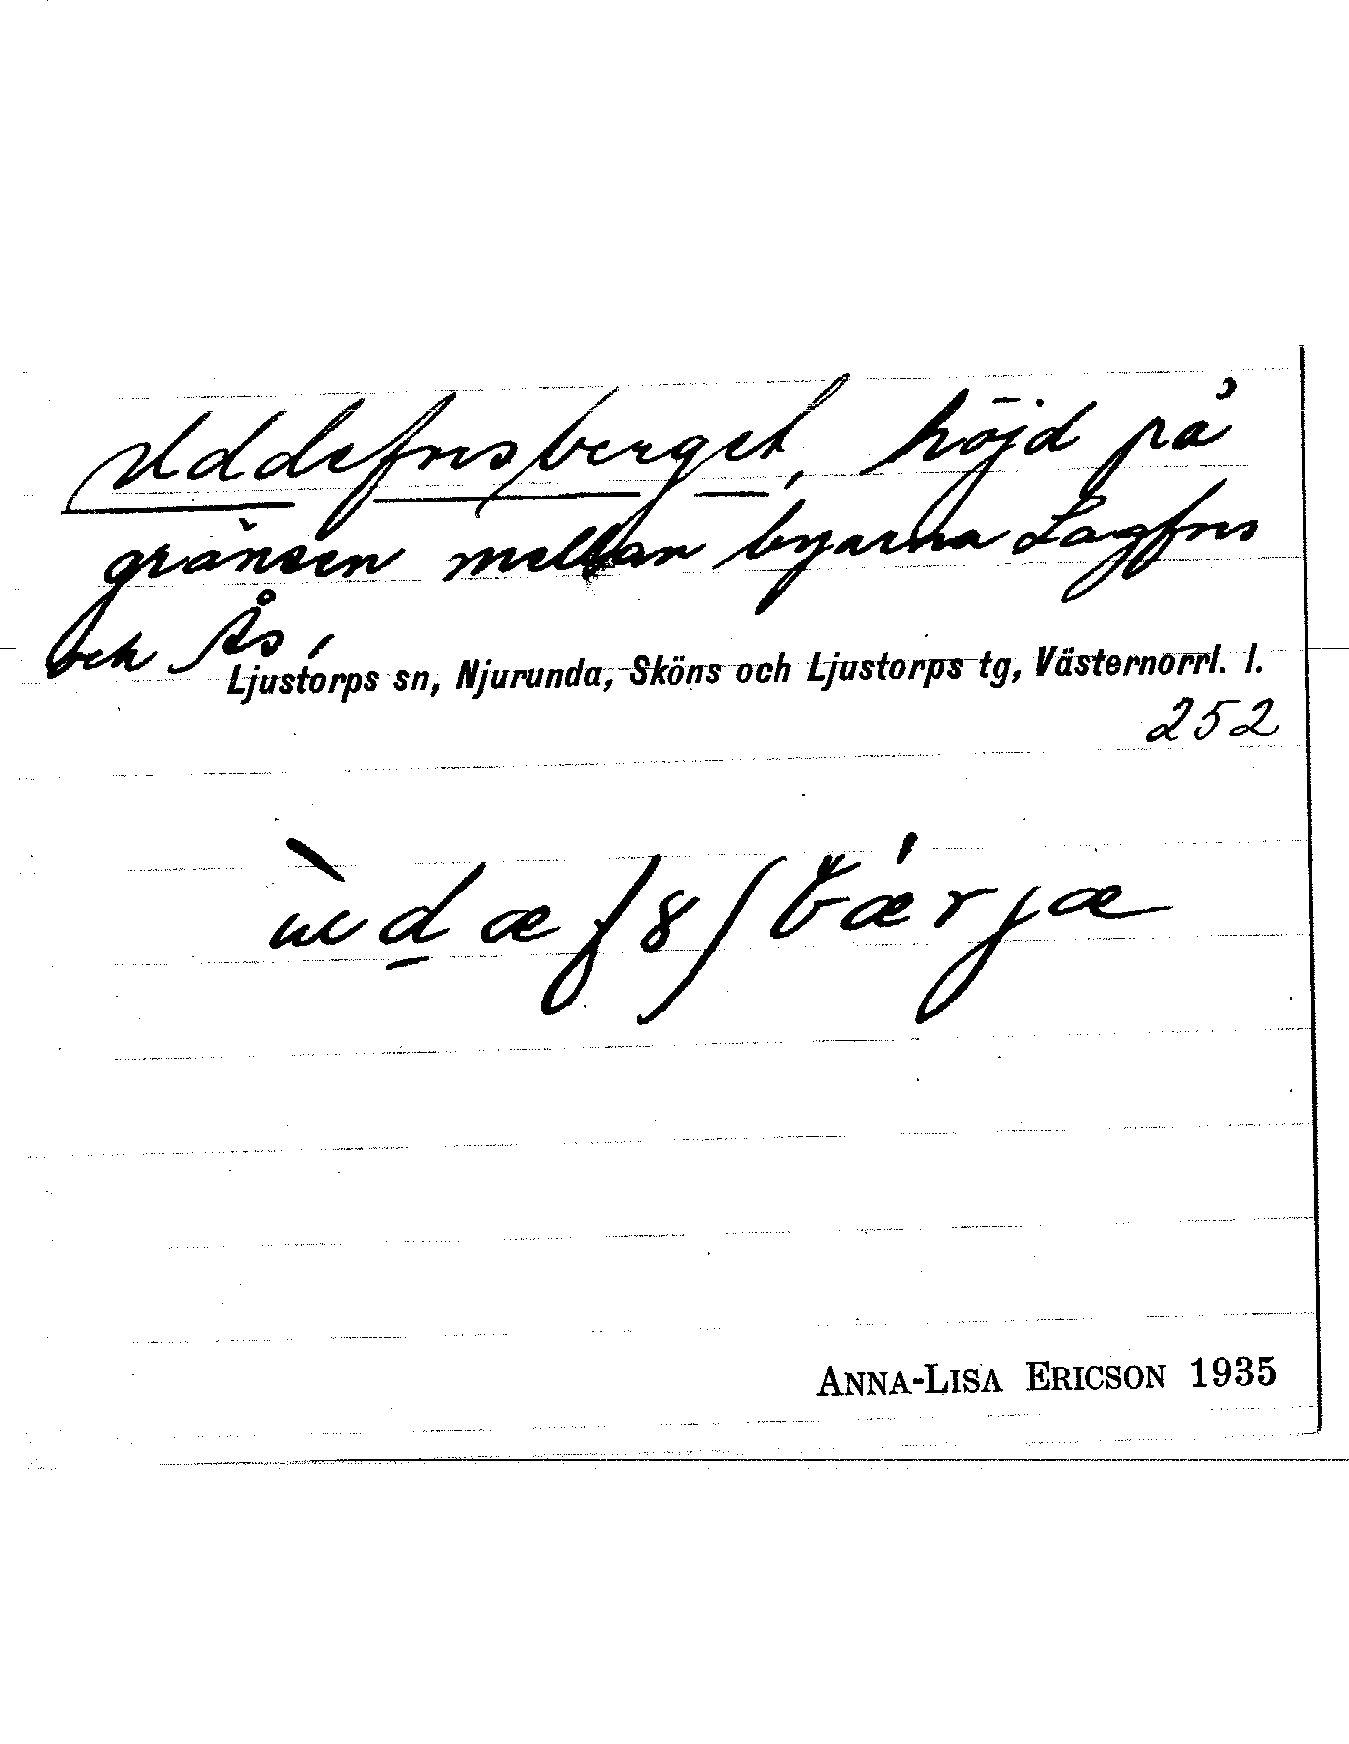 Uddeforsberget, höjd på
gränsen mellan byarna Lagfors
och Ås.
Ljustorps sn, Njurunda, Sköns och Ljustorps tg, Västernorrl. l.
252
ANNA-LISA ERICSON 1935